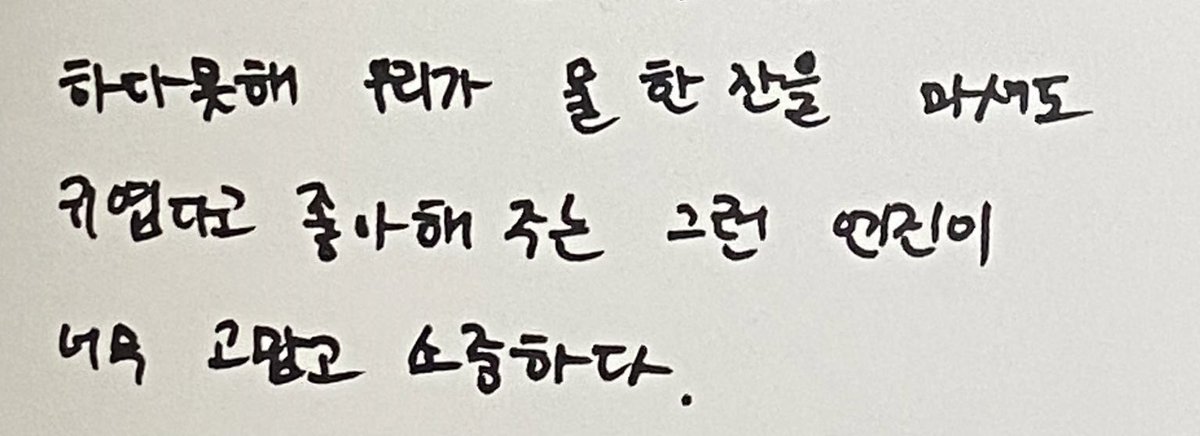 하다못해 우리가 물 한 잔을 마셔도
귀엽다고 좋아해 주는 그런 언진이
너무 고맙고 소중하다.